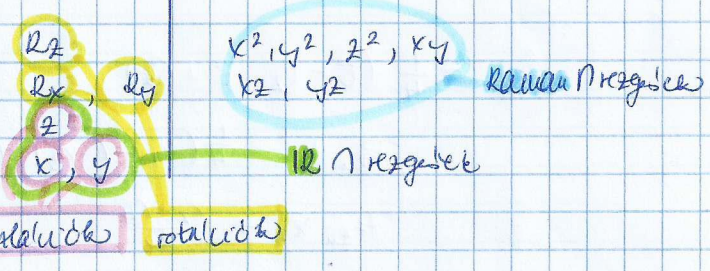 Rz
Rx, Ry
z
x, y
x², y², z², xy
xz, yz
Raman ∩ rezgések
IR ∩ rezgések
rotációk